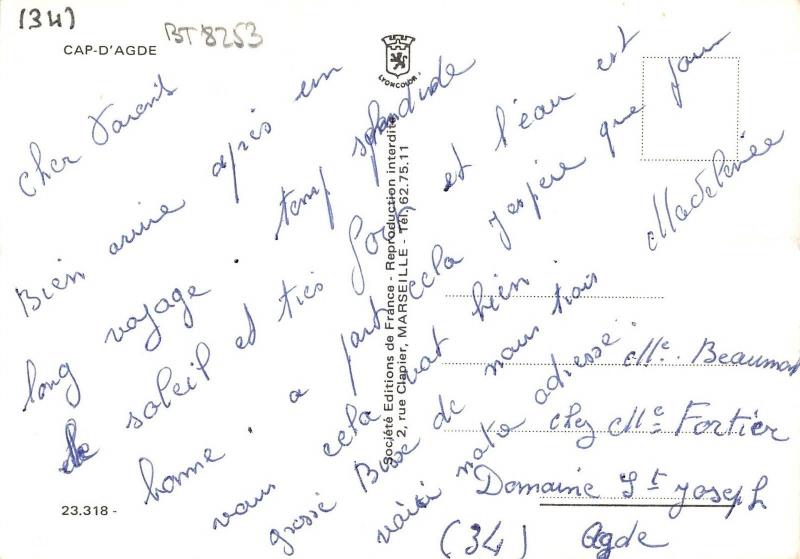 (34)
BT 8253
CAP-D'AGDE
LYONCOLOR
Cher Parents
Bien arrivé après un
long voyage. temp splendide
le soleil et très et l'eau est
bonne. a part cela j'espère que pour
vous cela vat bien.
grosse Bise de nous trois Madeleine
voici notre adresse:
Mle. Beaumont
chez Me Fortier
Domaine St Joseph
(34) Agde
Société Editions de France - Reproduction interdite
2, rue Clapier, MARSEILLE - Tél. 62.75.11
23.318 -